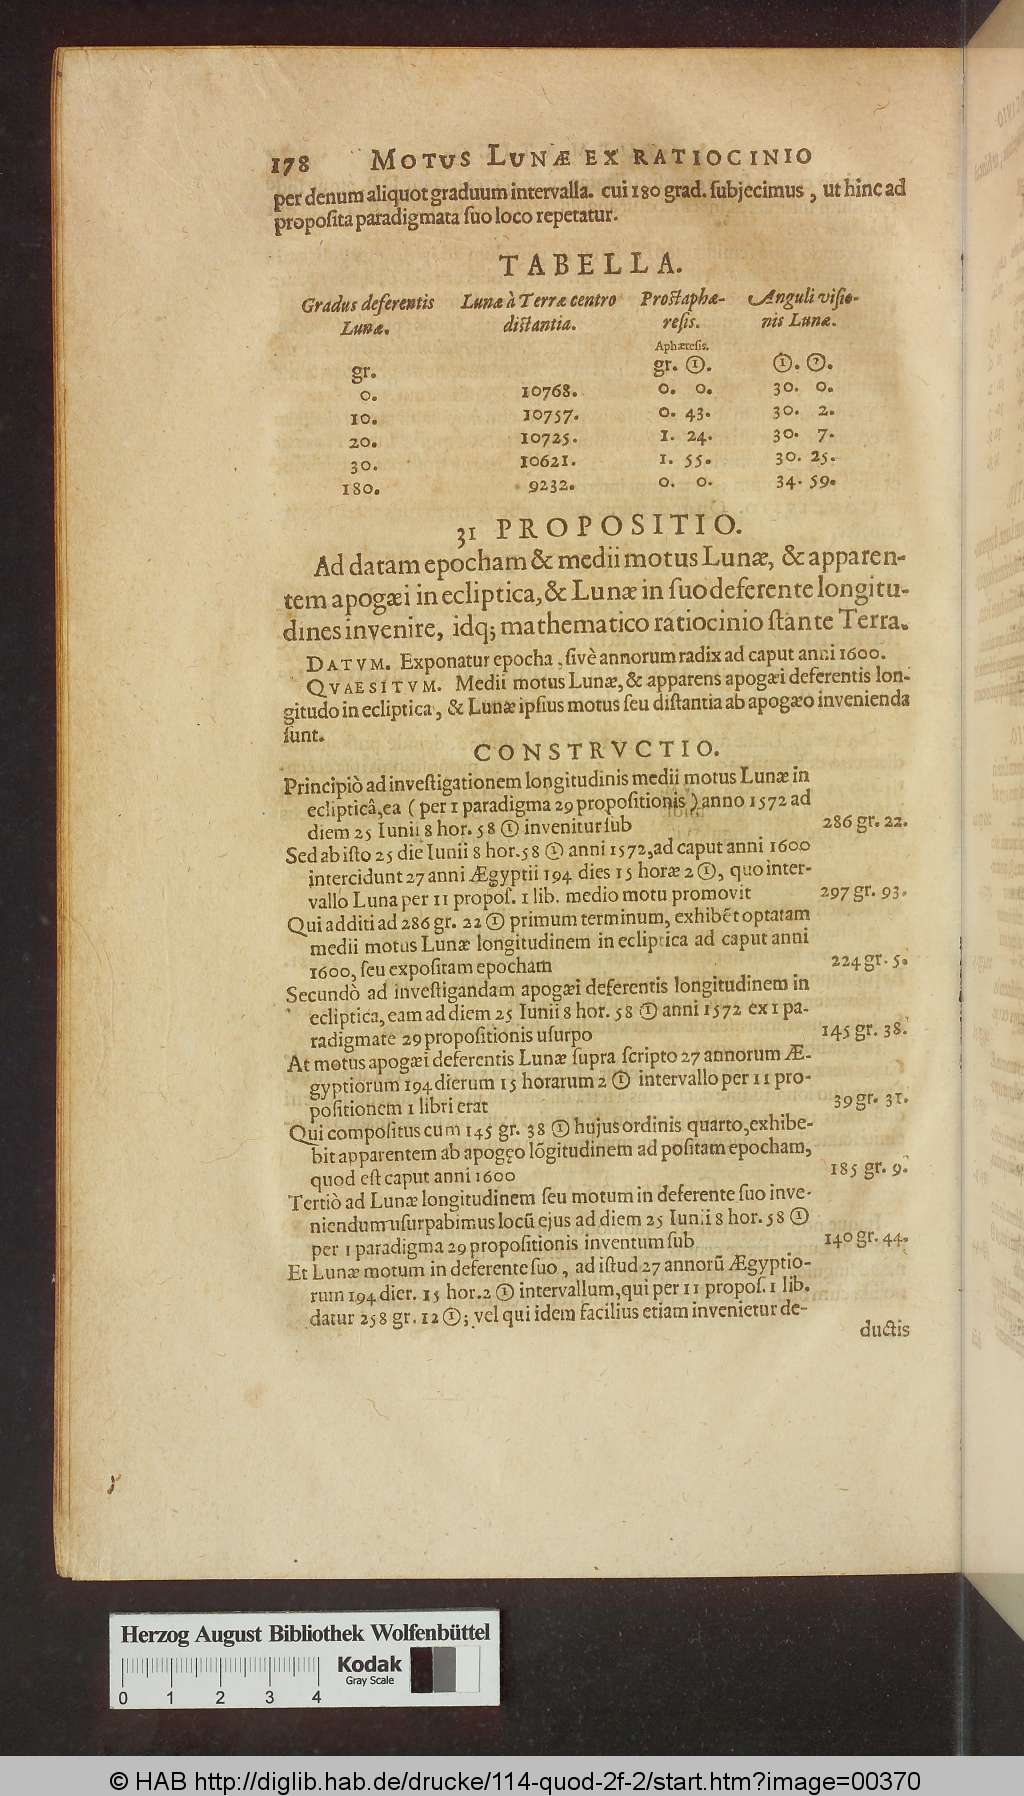 178 MOTUS LUNÆ EX RATIOCINIO
per denum aliquot graduum intervalla. cui 180 grad. ſubjecimus, ut hinc ad
propoſita paradigmata ſuo loco repetatur.
TABELLA.
Gradus deferentis Lunæ à Terræ centro Proſtaphæ- Anguli viſio-
Lunæ. diſtantia. reſis. nis Lunæ.
Aphæreſis.
gr. gr. ①. ①. ②.
0. 10768. 0. 0. 30. 0.
10. 10757. 0. 43. 30. 2.
20. 10725. 1. 24. 30. 7.
30. 10621. 1. 55. 30. 25.
180. 9232. 0. 0. 34. 59.
31 PROPOSITIO.
Ad datam epocham & medii motus Lunæ, & apparen-
tem apogæi in ecliptica, & Lunæ in ſuo deferente longitu-
dines invenire, idq; mathematico ratiocinio ſtante Terra.
DATVM. Exponatur epocha, ſivè annorum radix ad caput anni 1600.
QVAESITVM. Medii motus Lunæ, & apparens apogæi deferentis lon-
gitudo in ecliptica, & Lunæ ipſius motus ſeu diſtantia ab apogæo invenienda
ſunt.
CONSTRVCTIO.
Principiò ad inveſtigationem longitudinis medii motus Lunæ in
eclipticâ, ea ( per 1 paradigma 29 propoſitionis ) anno 1572 ad
diem 25 Iunii 8 hor. 58 ① invenitur ſub 286 gr. 22.
Sed ab iſto 25 die Iunii 8 hor. 58 ① anni 1572, ad caput anni 1600
intercidunt 27 anni Ægyptii 194 dies 15 horæ 2 ①, quo inter-
vallo Luna per 11 propoſ. 1 lib. medio motu promovit 297 gr. 93.
Qui additi ad 286 gr. 22 ① primum terminum, exhibẽt optatam
medii motus Lunæ longitudinem in ecliptica ad caput anni
1600, ſeu expoſitam epocham 224 gr. 5.
Secundò ad inveſtigandam apogæi deferentis longitudinem in
ecliptica, eam ad diem 25 Iunii 8 hor. 58 ① anni 1572 ex 1 pa-
radigmate 29 propoſitionis uſurpo 145 gr. 38.
At motus apogæi deferentis Lunæ ſupra ſcripto 27 annorum Æ-
gyptiorum 194 dierum 15 horarum 2 ① intervallo per 11 pro-
poſitionem 1 libri erat 39 gr. 31.
Qui compoſitus cum 145 gr. 38 ① hujus ordinis quarto, exhibe-
bit apparentem ab apogęo lõgitudinem ad poſitam epocham,
quod eſt caput anni 1600 185 gr. 9.
Tertiò ad Lunæ longitudinem ſeu motum in deferente ſuo inve-
niendum uſurpabimus locũ ejus ad diem 25 Iunii 8 hor. 58 ①
per 1 paradigma 29 propoſitionis inventum ſub 140 gr. 44.
Et Lunæ motum in deferente ſuo, ad iſtud 27 annorũ Ægyptio-
rum 194 dier. 15 hor. 2 ① intervallum, qui per 11 propoſ. 1 lib.
datur 258 gr. 12 ①; vel qui idem facilius etiam invenietur de-
ductis
Herzog August Bibliothek Wolfenbüttel
Kodak
Gray Scale
0 1 2 3 4
© HAB http://diglib.hab.de/drucke/114-quod-2f-2/start.htm?image=00370